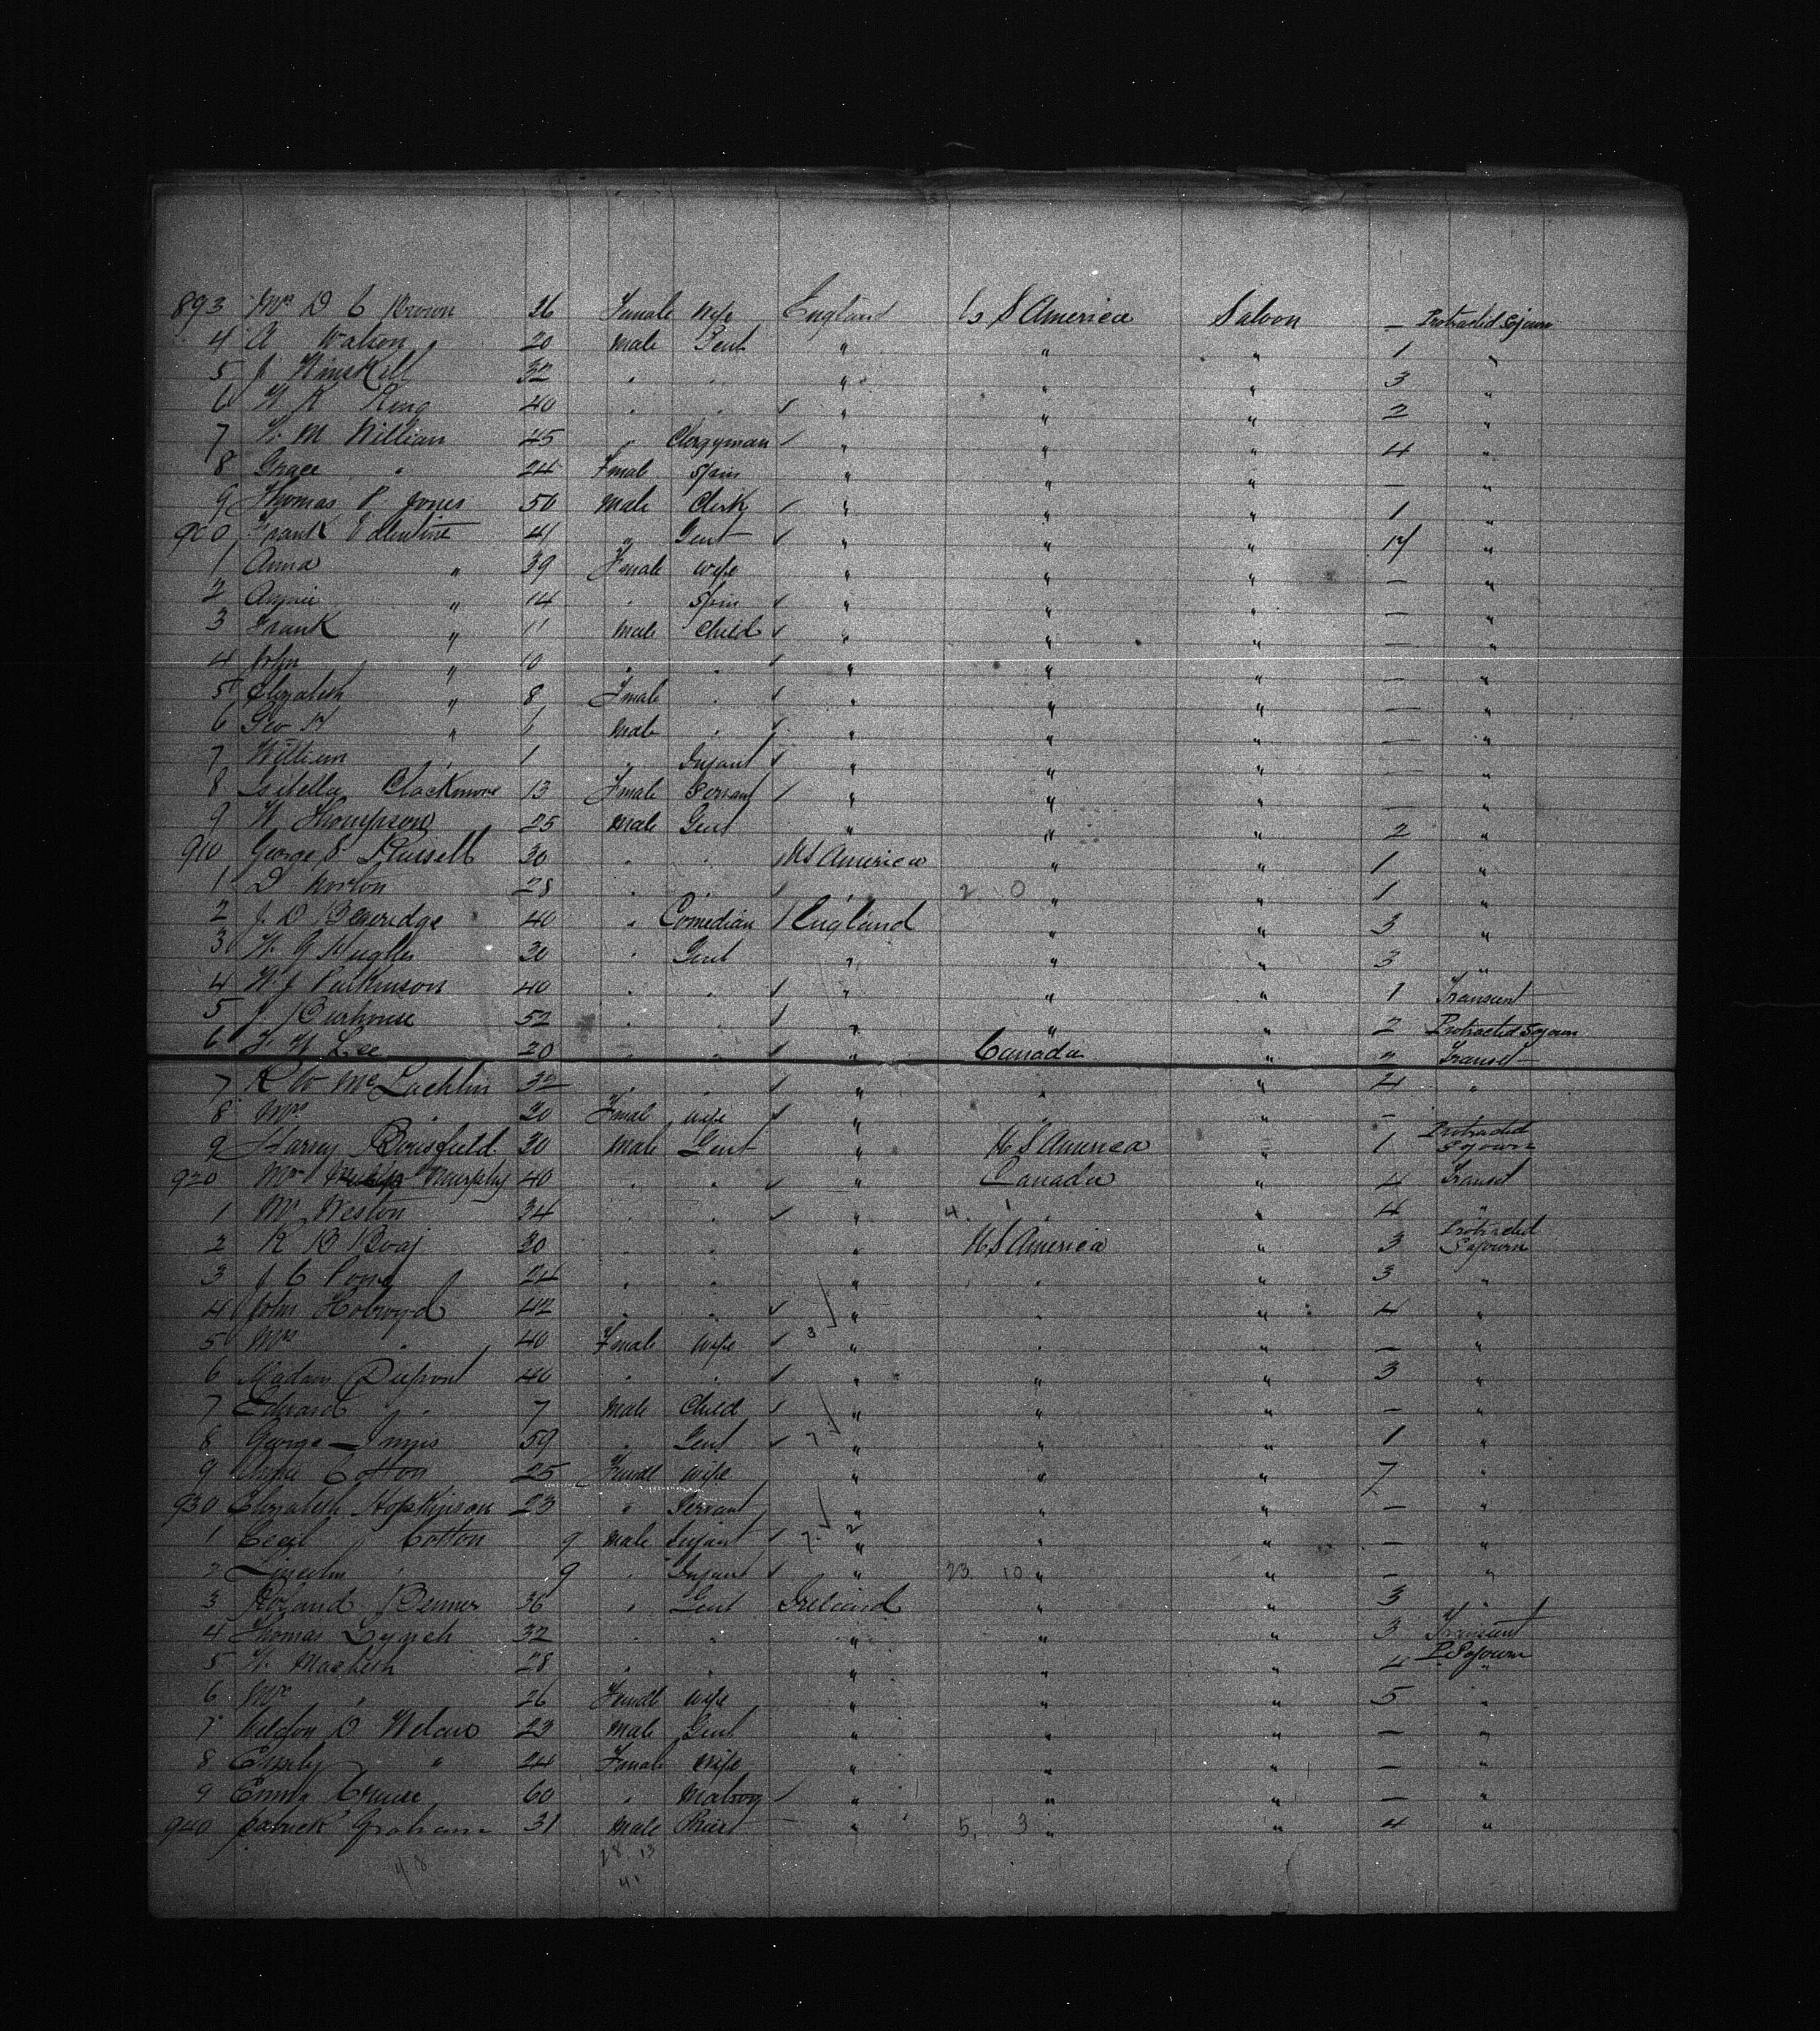 893 Mrs D C Brown 26 Female Wife England U S America Saloon — Protracted Sojourn
4 A Watson 20 Male Gent " " " 1 "
5 J Winskill 32 " " " " " 3 "
6 W R King 40 " " " " " 2 "
7 W. M Willian 45 " Clergyman " " " 4 "
8 Grace " 24 Female Spin " " " — "
9 Thomas P Jones 50 Male Clerk " " " 1 "
900 Frank Valentine 41 " Gent " " " 17 "
1 Anna " 39 Female Wife " " " — "
2 Annie " 14 " Spin " " " — "
3 Frank " 11 Male Child " " " — "
4 John " 10 " " " " " — "
5 Elizabeth " 8 Female " " " " — "
6 Geo H " 6 Male " " " " — "
7 William 1 " Infant " " " — "
8 Isabella 13 Female Servant " " " — "
9 W Thompson 25 Male Gent " " " 2 "
910 George S Russell 30 " " U S America " " 1 "
1 D Norton 28 " " 2 0 " " 1 "
2 J. D Beveridge 40 " Comedian England " " 3 "
3 W. G Hughes 30 " Gent " " " 3 "
4 W. J Parkinson 40 " " " " " 1 Transient
5 J 52 " " " " " 2 Protracted Sojourn
6 F W Lee 20 " " " Canada " 2 Transit
7 R W McLachlin 32 " " " " " 4 "
8 Mrs " 20 Female Wife " " " — "
9 Harry Bousfield 30 Male Gent " U S America " 1 Protracted Sojourn
920 Mr Murphy 40 " " " Canada " 4 Transit
1 Mr Weston 34 " " " 4. 1 " " 4 "
2 R B Boag 30 " " " U S America " 3 Protracted Sojourn
3 J C 24 " " " " " 3 "
4 John Holroyd 42 " " " " " 4 "
5 Mrs " 40 Female Wife 3 " " " — "
6 Madam Dupont 40 " " " " " 3 "
7 Edward " 7 Male Child " " " — "
8 George Innis 59 " Gent 7 " " " 1 "
9 Cotton 25 Female Wife " " " 7 "
930 Elizabeth Hopkinson 23 " Servant " " " — "
1 Cecil Cotton 9 Male Infant 7. 2 " " " — "
2 Lincoln " 9 " Infant 23 10 " " — "
3 36 " Gent Ireland " " 3 "
4 Thomas Lynch 32 " " " " " 3 Transient
5 W. Macbeth 28 " " " " " 4 P. Sojourn
6 Mrs " 26 Female Wife " " " 5 "
7 Weldon D 23 Male Gent " " " — "
8 Emily " 24 Female Wife " " " — "
9 Emma Cruise 60 " " " " — "
940 Patrick Graham 31 Male Priest " 5, 3 " " 4 "
48 28 13
41